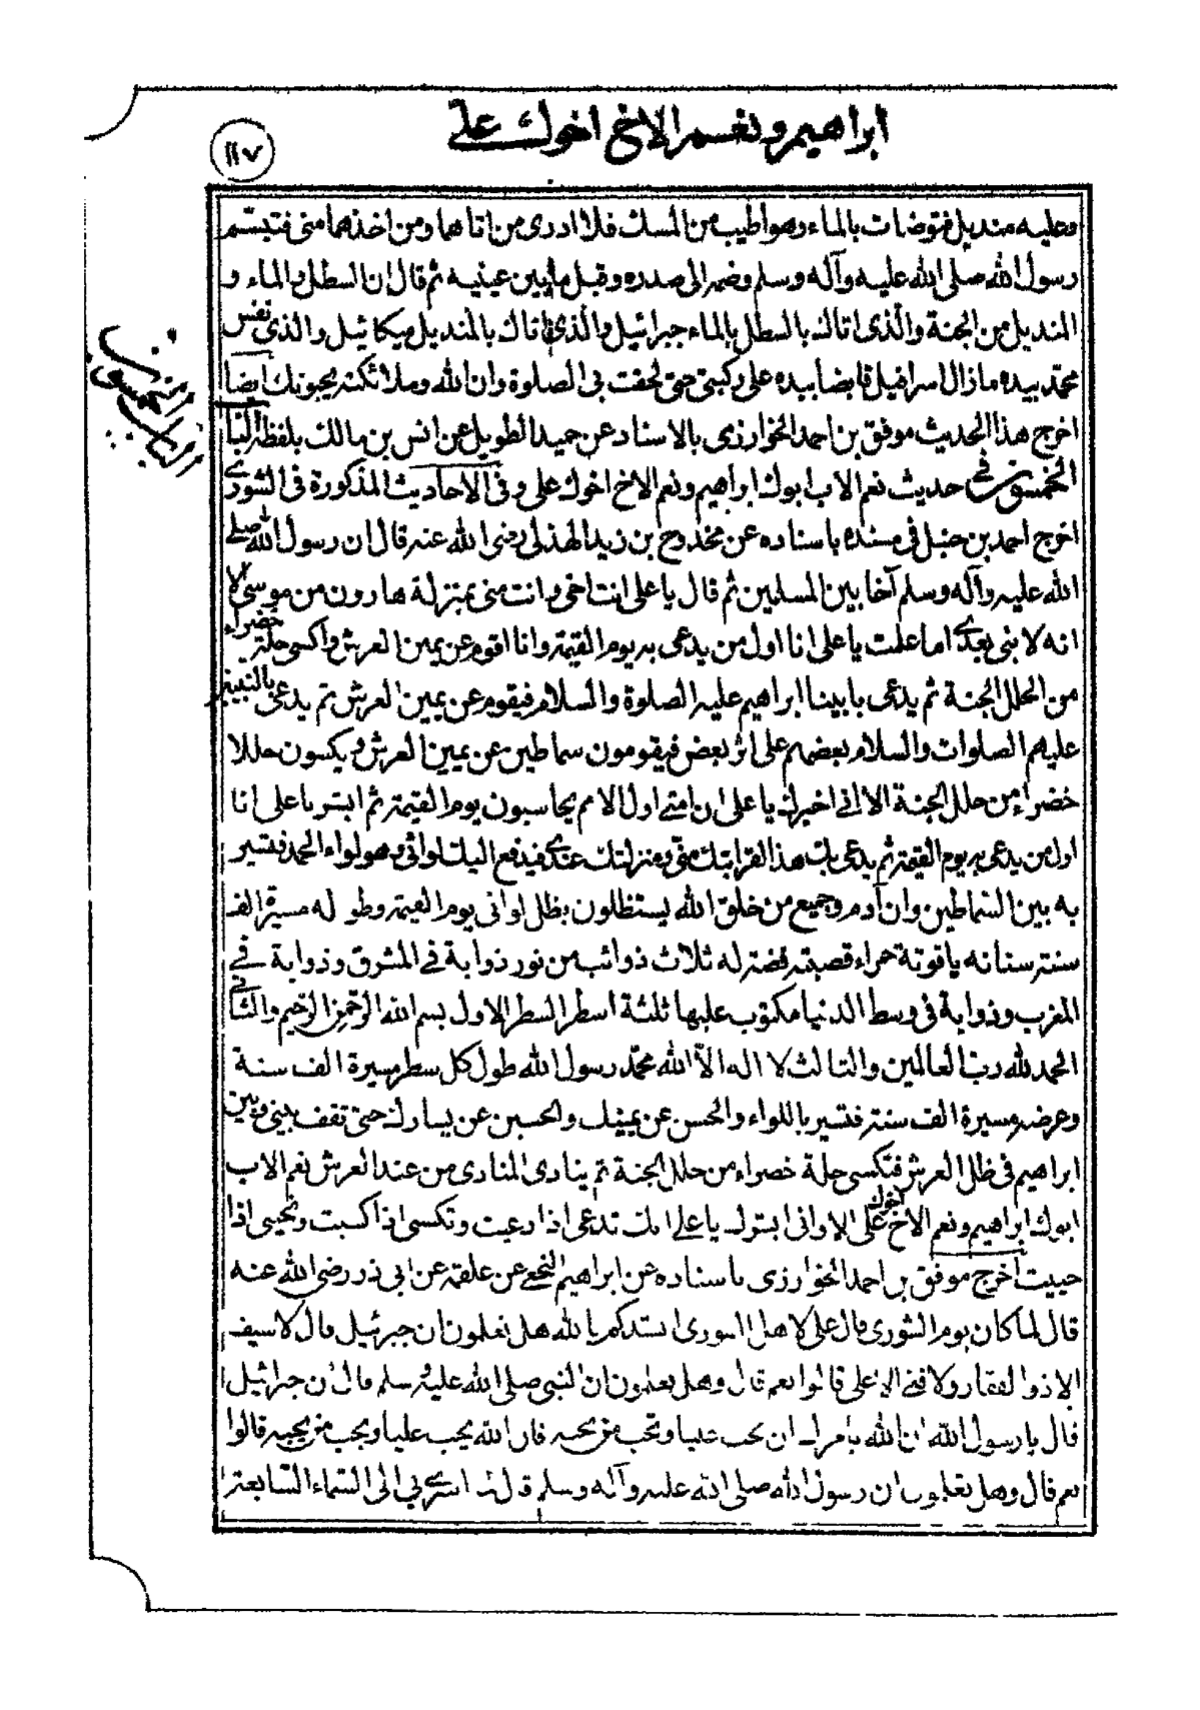 ابراهيم ونعم الاخ اخوك على
١١٧
وعليه منديل فتوضات بالماء وهو اطيب من المسك فلا ادرى من اتاهما ومن اخذهما منى فتبسّم
رسول الله صلى الله عليه وآله وسلم وضمه الى صدره وقبل ما بين عينيه ثم قال ان السطل والماء و
المنديل من الجنة والذى اتاك بالسطل بالماء جبرائيل والذى اتاك بالمنديل ميكائيل والذى نفس
محمّد بيده ما زال اسرافيل قابضا بيده على ركبتى حتى لحقت بى الصلوة وان الله وملائكته يحبونك ايضا
اخرج هذا الحديث موفق بن احمد الخوارزمى بالاسناد عن حميد الطويل عن انس بن مالك بلفظه الباب
الخمسون فى حديث نعم الاب ابوك ابراهيم ونعم الاخ اخوك على وفى الاحاديث المذكورة فى الشورى
الباب الخمسون
اخرج احمد بن حنبل فى مسنده باسناده عن مخدوج بن زيد الهذلى رضى الله عنه قال ان رسول الله صلى
الله عليه وآله وسلم آخا بين المسلمين ثم قال يا على انت اخى وانت منى بمنزلة هارون من موسى الا
انه لا نبى بعدى اما علمت يا على انا اول من يدعى به يوم القيمة وانا اقوم عن يمين العرش واكسى حلة خضراء
من الحلل الجنة ثم يدعى بابينا ابراهيم عليه الصلوة والسلام فيقوم عن يمين العرش ثم يدعى بالنبيين
عليهم الصلوات والسلام بعضهم على اثر بعض فيقومون سماطين عن يمين العرش ويكسون حللا
خضراء من حلل الجنة الا انى اخبرك يا على ان امتى اول الامم يحاسبون يوم القيمة ثم ابشر يا على انا
اول من يدعى به يوم القيمة ثم يدعى بك هذا لقرابتك منى ومنزلتك عندى فيدفع اليك لوائى وهو لواء الحمد فتسير
به بين السّماطين وان آدم وجميع من خلق الله يستظلون بظل لوائى يوم القيمة وطوله مسيرة الف
سنة سنانه ياقوتة حمراء قصبته فضة له ثلاث ذوائب من نور ذوابة فى المشرق وذوابة فى
المغرب وذوابة فى وسط الدنيا مكتوب عليها ثلثة اسطر السطر الاول بسم الله الرّحمن الرّحيم والثانى
الحمد لله ربّ العالمين والثالث لا اله الّا الله محمّد رسول الله طول كل سطر مسيرة الف سنة
وعرضه مسيرة الف سنة فتسير باللواء والحسن عن يمينك والحسين عن يسارك حتى تقف بينى وبين
ابراهيم فى ظل العرش فتكسى حلة خضراء من حلل الجنة ثم ينادى المنادى من عند العرش نعم الاب
ابوك ابراهيم ونعم الاخ اخوك على الا وانى ابشرك يا على انك تدعى اذا دعيت وتكسى اذا كسيت وتحيى اذا
حييت اخرج موفق بن احمد الخوارزمى باسناده عن ابراهيم النخعى عن علقمة عن ابى ذر رضى الله عنه
قال لما كان يوم الشورى قال على لاهل الشورى انشدكم بالله هل تعلمون ان جبرئيل قال لا سيف
الا ذو الفقار ولا فتى الا على قالوا نعم قال وهل تعلمون ان النبى صلى الله عليه وسلم قال ان جبرائيل
قال يا رسول الله ان الله يأمرك ان تحب عليا وتحب من يحبه فان الله يحب عليا ويحب من يحبه قالوا
نعم قال وهل تعلمون ان رسول الله صلى الله عليه وآله وسلم قال لما اسرى بى الى السّماء السّابعة